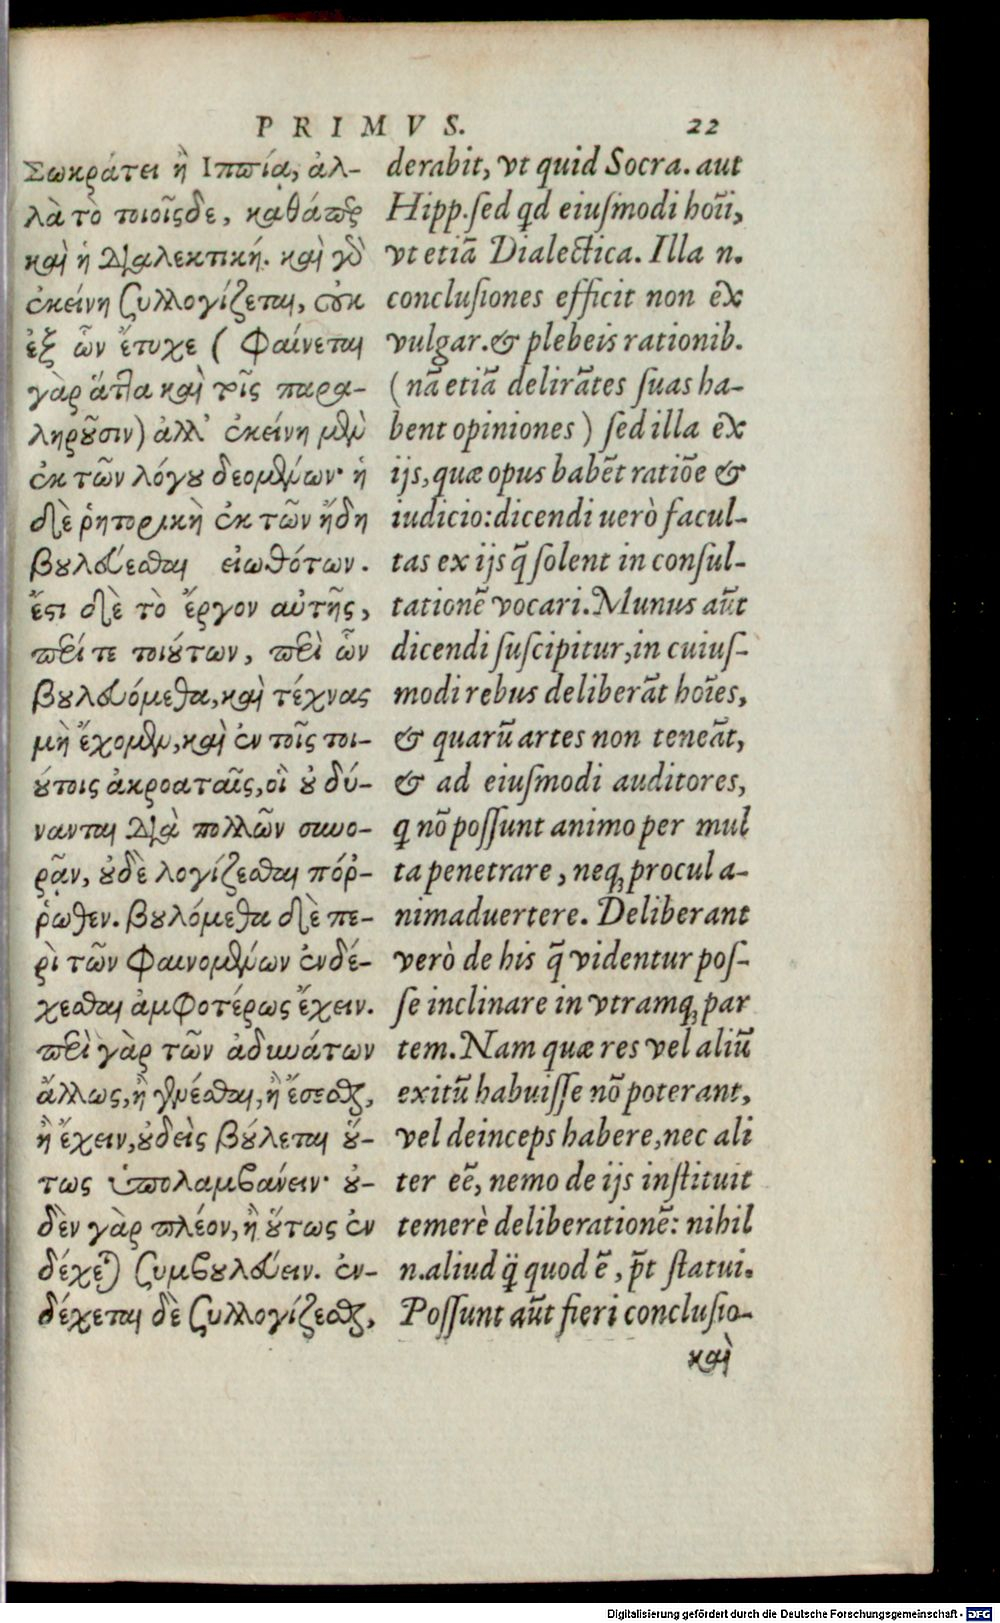 PRIMVS. 22
Σωκράτει ἢ Ιππία, ἀλ-
λὰ τὸ τοιοῖςδε, καθάπερ
καὶ ἡ διαλεκτική. καὶ γὸ
ἐκείνη συλλογίζεται, οὐκ
ἐξ ὧν ἔτυχε ( φαίνεται
γὰρ ἅττα καὶ τοῖς παρα-
ληροῦσιν) ἀλλ' ἐκείνη μὲν
ἐκ τῶν λόγου δεομένων· ἡ
δὲ ῥητορικὴ ἐκ τῶν ἤδη
βουλεύεσθαι εἰωθότων.
ἔστι δὲ τὸ ἔργον αὐτῆς,
περί τε τοιούτων, περὶ ὧν
βουλευόμεθα, καὶ τέχνας
μὴ ἔχομεν, καὶ ἐν τοῖς τοι-
ούτοις ἀκροαταῖς, οἳ οὐ δύ-
νανται διὰ πολλῶν συνο-
ρᾷν, οὐδὲ λογίζεσθαι πόῤ-
ῥωθεν. βουλόμεθα δὲ πε-
ρὶ τῶν φαινομένων ἐνδέ-
χεσθαι ἀμφοτέρως ἔχειν.
περὶ γὰρ τῶν ἀδυνάτων
ἄλλως, ἢ γενέσθαι, ἢ ἔσεσθαι,
ἢ ἔχειν, οὐδεὶς βούλεται οὕ-
τως ὑπολαμβάνειν· οὐ-
δὲν γὰρ πλέον, ἢ οὕτως ἐν
δέχεται) συμβουλεύειν. ἐν-
δέχεται δὲ συλλογίζεσθαι,
derabit, vt quid Socra. aut
Hipp. sed qd eiusmodi hoīi,
vt etiā Dialectica. Illa n.
conclusiones efficit non ex
vulgar. & plebeis rationib.
(nā etiā delirātes suas ha-
bent opiniones) sed illa ex
ijs, quæ opus habēt ratiōe &
iudicio: dicendi uerò facul-
tas ex ijs q̄ solent in consul-
tationē vocari. Munus aūt
dicendi suscipitur, in cuius-
modi rebus deliberāt hoīes,
& quarū artes non teneāt,
& ad eiusmodi auditores,
q nō possunt animo per mul
ta penetrare, neq; procul a-
nimaduertere. Deliberant
verò de his q̄ videntur pos-
se inclinare in vtramq; par
tem. Nam quæ res vel aliū
exitū habuisse nō poterant,
vel deinceps habere, nec ali
ter eē, nemo de ijs instituit
temerè deliberationē: nihil
n. aliud q̈ quod ē, p̄t statui.
Possunt aūt fieri conclusio-
καὶ
Digitalisierung gefördert durch die Deutsche Forschungsgemeinschaft - DFG